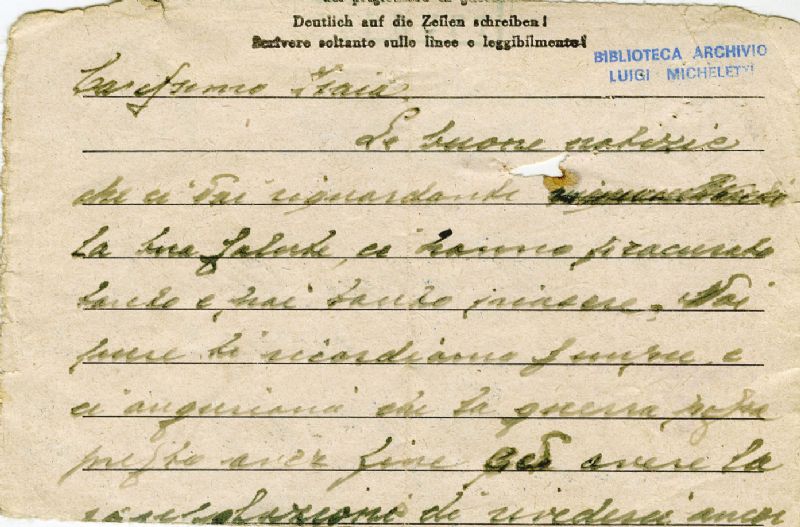 Deutlich auf die Zeilen schreiben!
Scrivere soltanto sulle linee e leggibilmente!
BIBLIOTECA ARCHIVIO
LUIGI MICHELETTI
Carissimo
Le buone notizie
che ci dai riguardante
la tua salute, ci hanno procurato
tanto e poi tanto piacere. Noi
pure ti ricordiamo sempre e
ci auguriamo che la guerra possa
presto aver fine ed avere la
consolazione di rivederci ancor